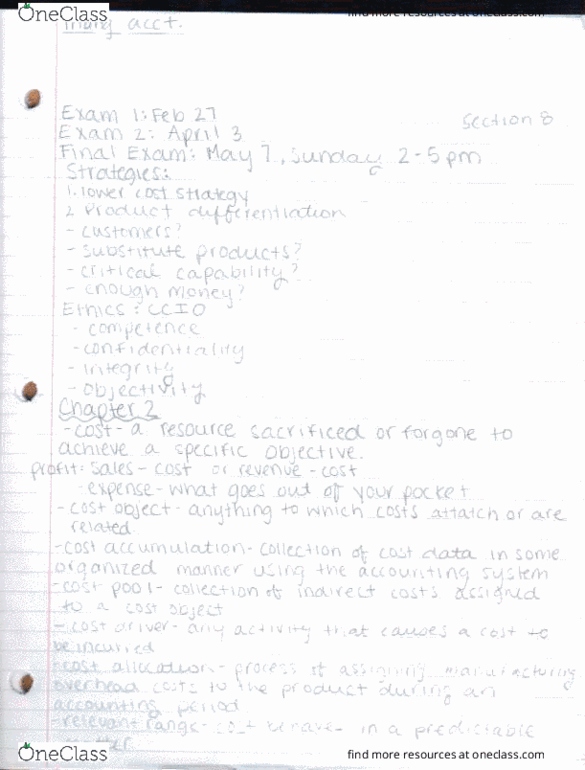 OneClass
find more resources at oneclass.com
acct.
Exam 1: Feb 27
Section 8
Exam 2: April 3
Final Exam: May 7, Sunday 2-5pm
Strategies:
1. lower cost strategy
2. Product differentiation
- customers?
- substitute products?
- critical capability?
- enough money?
Ethics: CCIO
- competence
- confidentiality
- integrity
- objectivity
Chapter 2
- cost - a resource sacrificed or forgone to
achieve a specific objective.
profit: sales - cost or revenue - cost
- expense - what goes out of your pocket
- cost object - anything to which costs attatch or are
related
- cost accumulation - collection of cost data in some
organized manner using the accounting system
- cost pool - collection of indirect costs assigned
to a cost object
- cost driver - any activity that causes a cost to
be incurred
- cost allocation - process of assigning manufacturing
overhead costs to the product during an
accounting period
- relevant range - cost behave in a predictable
OneClass
find more resources at oneclass.com